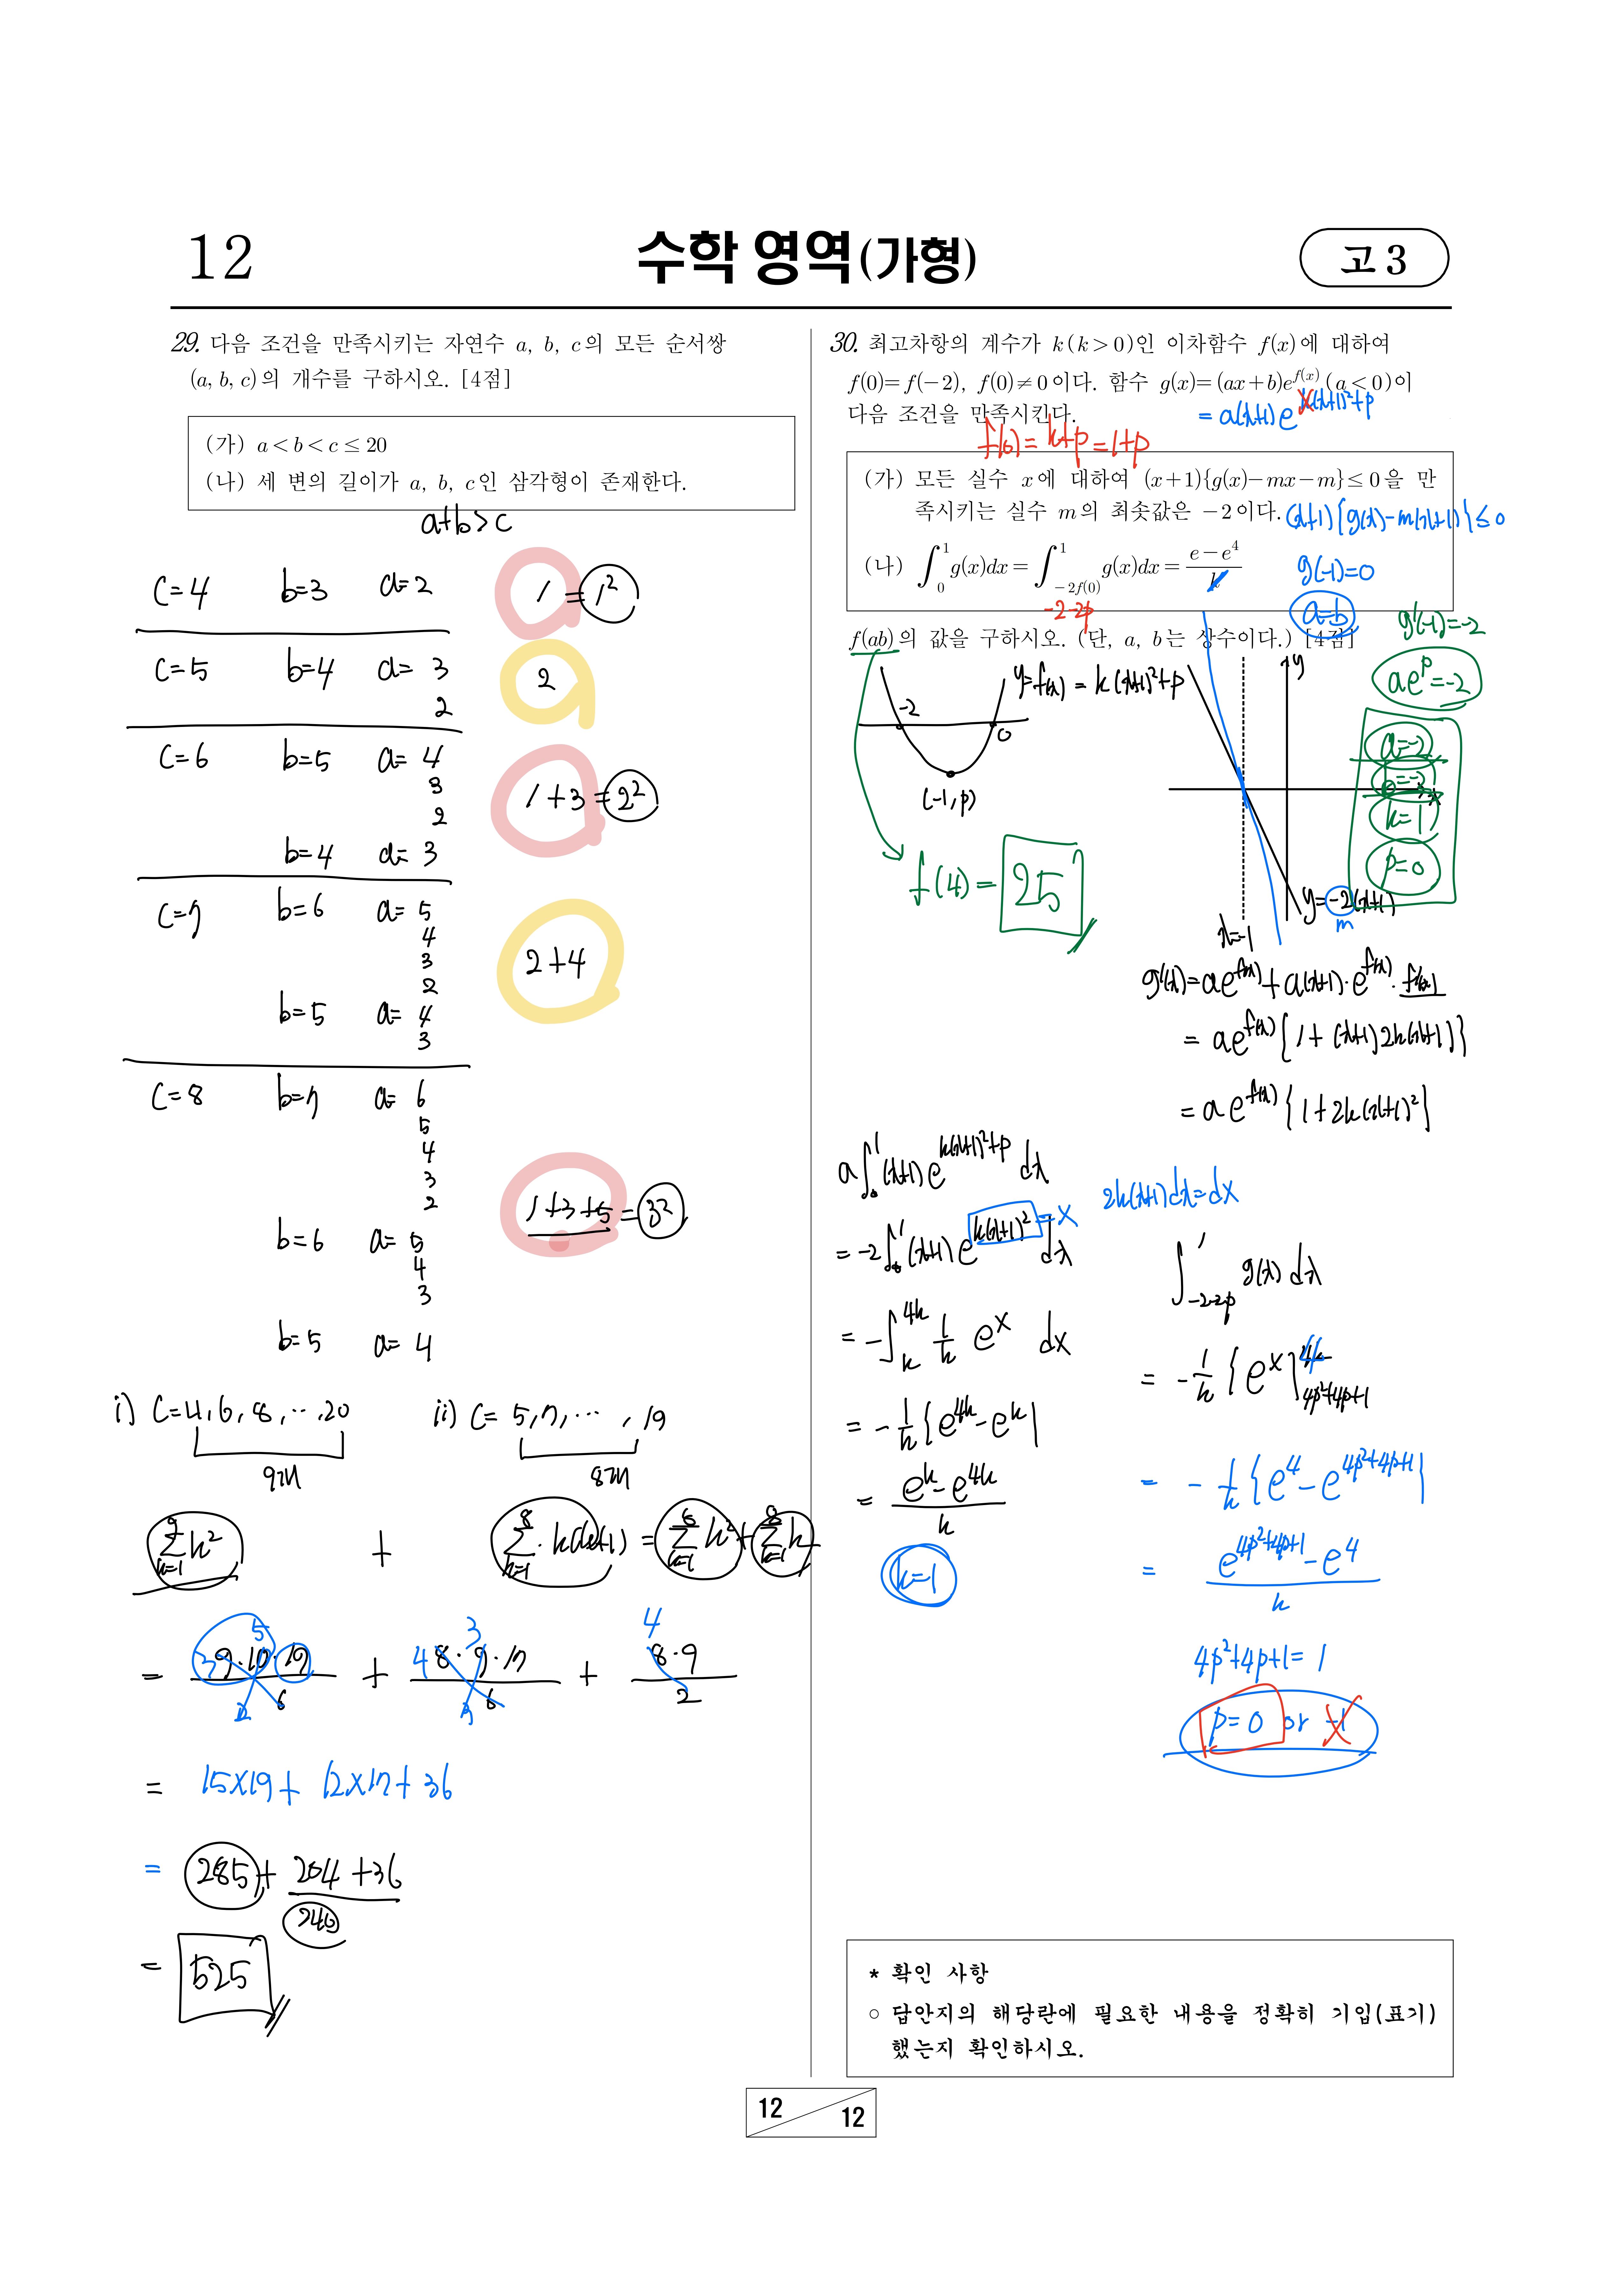 12
수학 영역(가형)
고 3
29. 다음 조건을 만족시키는 자연수 a, b, c의 모든 순서쌍
(a, b, c)의 개수를 구하시오. [4점]
(가) a < b < c ≤ 20
(나) 세 변의 길이가 a, b, c인 삼각형이 존재한다.
a+b>c
c=4 b=3 a=2 1 = 1²
c=5 b=4 a= 3 2
2
c=6 b=5 a= 4 1+3 = 2²
3
2
b=4 a= 3
c=7 b=6 a= 5
4
3 2+4
2
b=5 a= 4
3
c=8 b=7 a= 6
5
4
3
2 1+3+5 = 3²
b=6 a= 5
4
3
b=5 a= 4
i) c=4, 6, 8, ⋯, 20 ii) c= 5, 7, ⋯, 19
9개 8개
∑_{k=1}^{9} k² + ∑_{k=1}^{8} k(k+1) = ∑_{k=1}^{8} k² + ∑_{k=1}^{8} k
= 9·10·19/6 + 8·9·17/6 + 8·9/2
3 5 2 4 3 4
= 15×19 + 12×17 + 36
= 285 + 204 + 36
240
= 525
30. 최고차항의 계수가 k(k > 0)인 이차함수 f(x)에 대하여
f(0)=f(−2), f(0)≠0이다. 함수 g(x)=(ax+b)e^{f(x)} (a<0)이
다음 조건을 만족시킨다.
= a(x+1)e^{k(x+1)²+p}
f(0)= k+p = 1+p
(가) 모든 실수 x에 대하여 (x+1){g(x)−mx−m}≤0을 만
족시키는 실수 m의 최솟값은 −2이다.
(x+1){g(x)-m(x+1)}≤0
(나) ∫_{0}^{1} g(x)dx = ∫_{−2f(0)}^{1} g(x)dx = (e−e⁴)/k
-2-2p
g(-1)=0
a=b
f(ab)의 값을 구하시오. (단, a, b는 상수이다.) [4점]
g'(-1)=-2
ae^p=-2
a=-2
b=-2
k=1
p=0
y=f(x)= k(x+1)²+p
-2 0
(-1, p)
f(4)= 25
y
x
x=-1
y=-2(x+1)
m
g'(x)=ae^{f(x)}+a(x+1)·e^{f(x)}·f'(x)
= ae^{f(x)}{1+(x+1)2k(x+1)}
= ae^{f(x)}{1+2k(x+1)²}
a∫_{0}^{1}(x+1)e^{k(x+1)²+p} dx
= -2∫_{0}^{1}(x+1)e^{k(x+1)²} dx
= X
2k(x+1)dx=dX
= -∫_{k}^{4k} 1/k e^X dX
= -1/k{e^{4k}-e^k}
= (e^k-e^{4k})/k
k=1
∫_{-2-2p}^{1} g(x)dx
= -1/k [e^X]_{4p²+4p+1}^{4}
= -1/k{e⁴-e^{4p²+4p+1}}
= (e^{4p²+4p+1}-e⁴)/k
4p²+4p+1= 1
p=0 or -1
* 확인 사항
○ 답안지의 해당란에 필요한 내용을 정확히 기입(표기)
했는지 확인하시오.
12
12